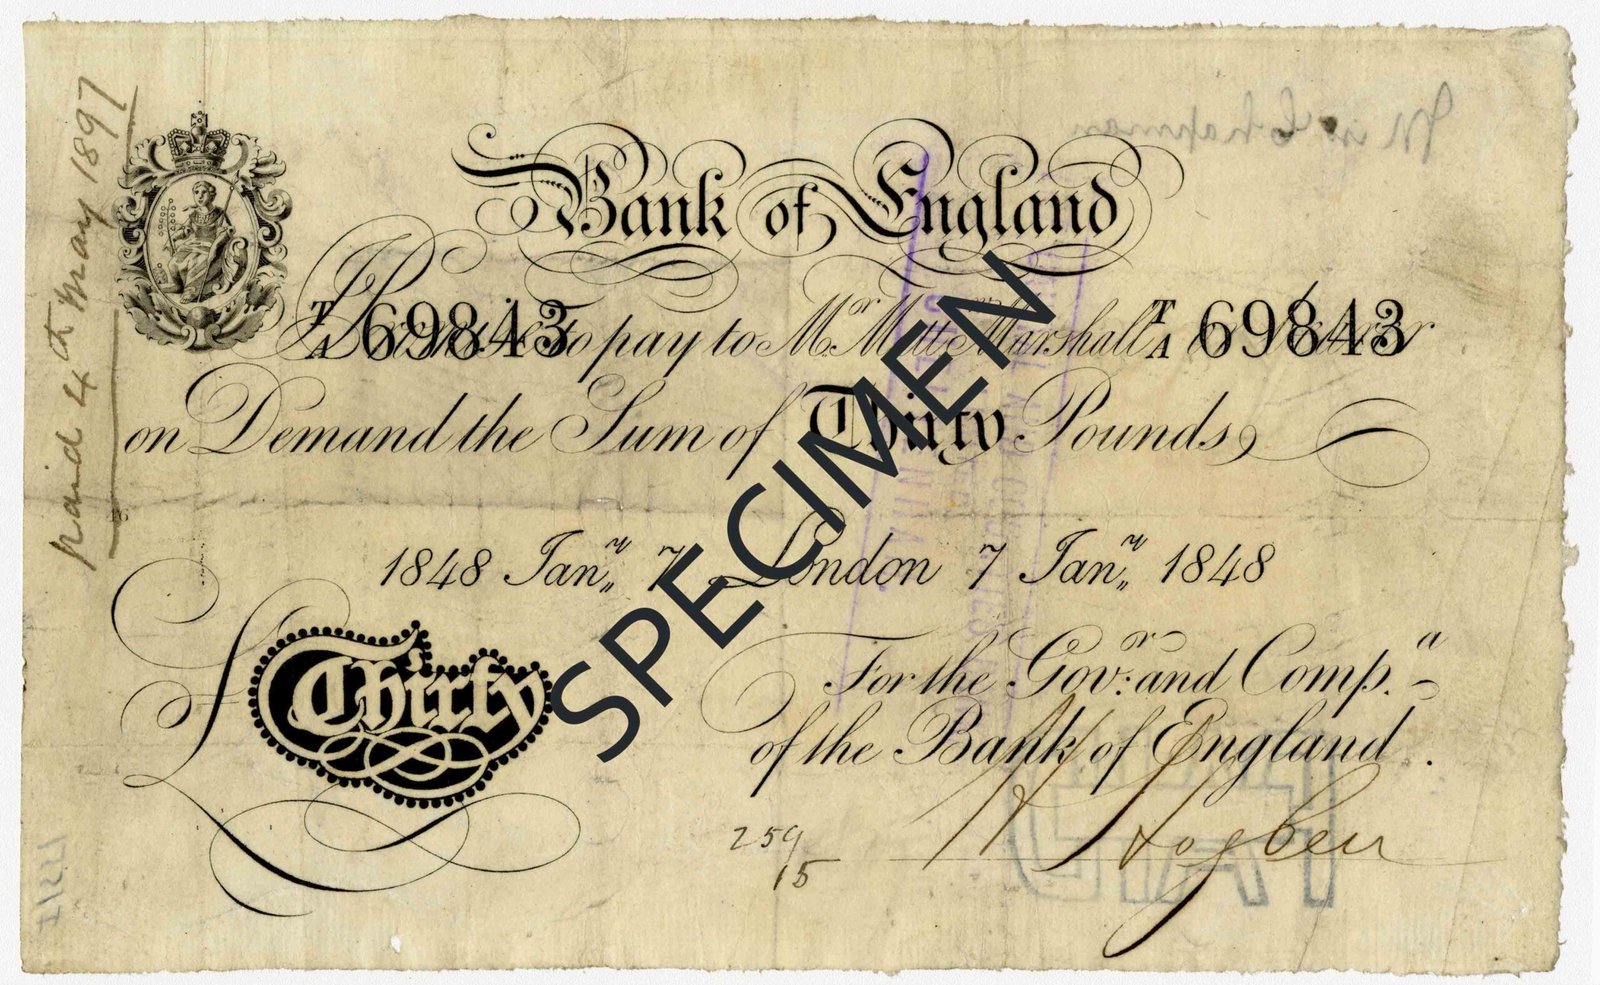 paid 4th May 1897
Miss Chapman
Bank of England
T/A 69843 T/A 69843
I Promise to pay to Mr. Matt. Marshall or bearer
on Demand the Sum of Thirty Pounds
1848 Jany 7 London 7 Jany 1848
Thirty
For the Govr. and Compa.
of the Bank of England.
259
15
Hogben
SPECIMEN